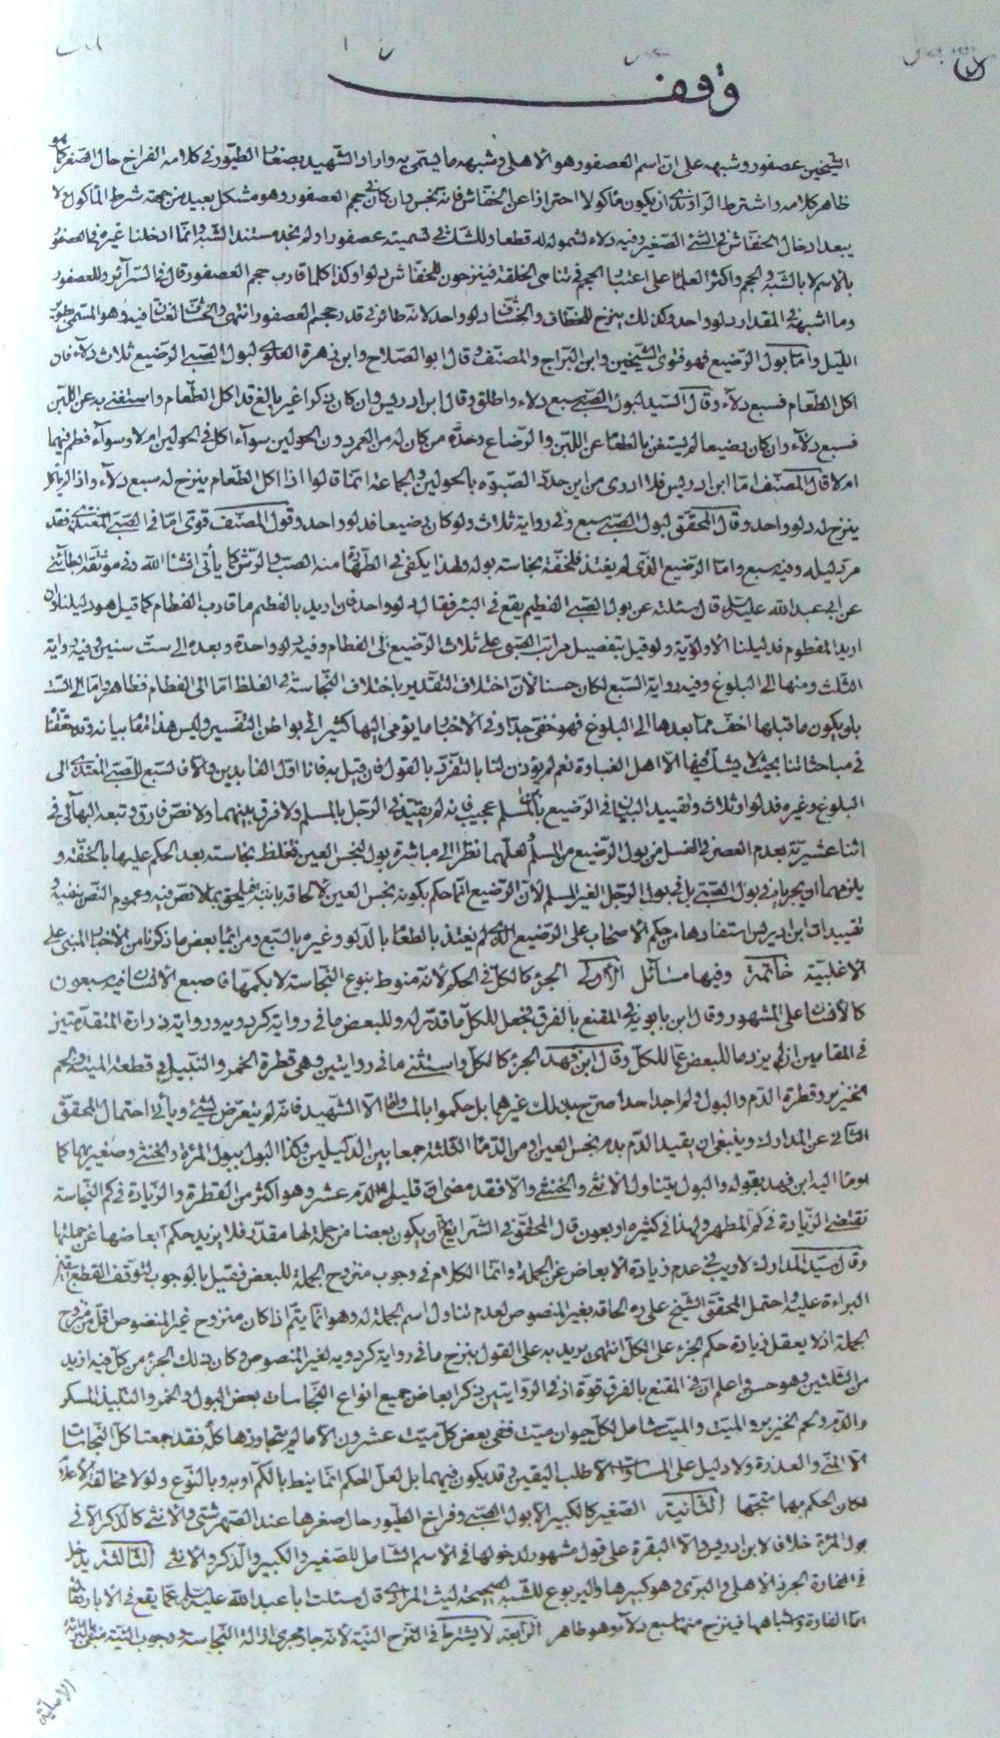 وقف
الشيخين عصفور وشبهه على ان اسم العصفور هو الاهلى وشبهه ما يسمى به واراد الشهيد بصغار الطيور في كلامه الفراخ حال الصغر كما هو
ظاهر كلامه واشترط الراوندى ان يكون مأكولا احترازا عن الخفاش فانه نجس وان كان في حجم العصفور وهو مشكل بعيد من جهة شرط المأكول ولا
يبعد ادخال الخفاش في الشئ الصغير وفيه دلاء لشموله له قطعا وللشك في تسميته عصفورا ولم نجد مستند الشبه وانما ادخلنا غيره في العصفور
بالاسم لا بالشبه والحجم واكثر العلماء على اعتبار الحجم في تناهى الخلقة فينزحون للخفاش دلوا وكذا كلما قارب حجم العصفور قال في السرائر وللعصفور
وما اشبهه في المقدار دلو واحد وكذلك ينزح للخطاف والخشاف دلو واحد لانه طائر في قدر حجم العصفور انتهى والخشاف لغتان فيه وهو المسمى بطوير
الليل واما بول الرضيع فهو فتوى الشيخين وابن البراج والمصنف وقال ابو الصلاح وابن زهرة العلوى لبول الصبى الرضيع ثلاث دلاء فان
اكل الطعام فسبع دلاء وقال السيد لبول الصبى سبع دلاء واطلق وقال ابن ادريس وان كان ذكرا غير بالغ قد اكل الطعام واستغنى به عن اللبن
فسبع دلاء وان كان رضيعا لم يستغن بالطعام عن اللبن والرضاع وحده من كان له من العمر دون الحولين سواء اكل في الحولين ام لا وسواء فطم فيهما
ام لا قال المصنف اما ابن ادريس فلا ادرى من اين حدد الصبوة بالحولين والجماعة انما قالوا اذا اكل الطعام ينزح له سبع دلاء واذا لم ياكل
ينزح له دلو واحد وقال المحقق لبول الصبى سبع وفي رواية ثلاث ولو كان رضيعا فدلو واحد وقول المصنف قوى اما في الصبى المغتذى فقد
مر دليله وفيه سبع واما الرضيع الذى لم يغتذ فلخفة نجاسة بوله ولهذا يكفى في الطهارة منه الصب والرش كما يأتى انشاء الله وفي موثقة الطائى
عن ابى عبد الله عليه السلام قال سئلته عن بول الصبى الفطيم يقع في البئر فقال دلو واحد فان اريد بالفطيم ما قارب الفطام كما قيل هو دليلنا وان
اريد المفطوم فدليلنا الاولوية ولو قيل بتفصيل مراتب الصبى على ثلاث الرضيع الى الفطام وفيه دلو واحدة وبعده الى ست سنين وفيه رواية
الثلث ومنها الى البلوغ وفيه رواية السبع لكان حسنا لان اختلاف التقدير باختلاف النجاسة في الغلظ اما الى الفطام فظاهر واما الى الست
بان يكون ما قبلها اخف مما بعدها الى البلوغ فهو خفى جدا وفي الاخبار ما يومى اليها كثير الى بواطن التفسير وليس هذا مقام بيانه وقد حققنا
في مباحثاتنا بحيث لا يشك فيها الا اهل الغباوة نعم لم يؤذن لنا بالتفرد بالقول فان قيل به فانا اول العابدين والا فالسبع للصبى المغتذى الى
البلوغ وغيره فدلو او ثلاث وتقييد البيان في الرضيع بابن المسلم عجيب فانه لم يقيد في الرجل بالمسلم ولا فرق بينهما ولا نص فارق وتبعه البهائى في
اثنا عشريته بعدم العصر في الغسل من بول الرضيع من المسلم لعلهما نظرا الى مباشرة بول لنجس العين فتغلظ نجاسته بعد الحكم عليها بالخفة و
يلزمهما ان يجريا في بول الصبى بل في بول الرجل الغير المسلم لان الرضيع انما حكم بكونه نجس العين لالحاقه بابيه فيلحق بما لا نص فيه وعموم النص ينفيه و
تقييدات ابن ادريس استفادها من حكم الاصحاب على الرضيع الذى لم يغتذ بالطعام بالدلو وغيره بالسبع ومن ايماء بعض ما ذكرنا من الاخبار المبنى على
الاغلبية خاتمة وفيها مسائل الاولى الجزء كالكل في الحكم لانه منوط بنوع النجاسة لا بكمها فاصبع الانسان فيه سبعون
كالانسان على المشهور وقال ابن بابويه في المقنع بالفرق فجعل للكل ما قدر له وللبعض ما في رواية كردويه ورواية زرارة المتقدمتين
في المقامين اذ لم يزد ما للبعض عما للكل وقال ابن فهد الجزء كالكل واستثنى ما في روايتين وهى قطرة الخمر والنبيذ وقطعة الميتة ولحم
الخنزير وقطرة الدم والبول ولم اجد احدا صرح بذلك غيرهما بل حكموا بالمساواة الا الشهيد فانه لم يتعرض لشئ ويأتى احتمال المحقق
الثانى عن المدارك وينبغى ان يقيد الدم بدم نجس العين او من الدماء الثلثة جمعا بين الدليلين وكذا البول ببول المرءة والخنثى وصغيرهما كما
اومأ اليه ابن فهد بقوله والبول يتناول الانثى والخنثى والا فقد مضى ان في قليل الدم عشر وهو اكثر من القطرة والزيادة في كم النجاسة
تقتضى الزيادة في كم المطهر ولهذا في كثيره اربعون قال المحقق في الشرايع الا ان يكون بعضا من جملة لها مقدر فلا يزيد حكم ابعاضها عن جملتها
وقال سيد المدارك لا ريب في عدم زيادة الابعاض عن الجملة وانما الكلام في وجوب منزوح الجملة للبعض فقيل بالوجوب لتوقف القطع بيقين
البراءة عليه واحتمل المحقق الشيخ على ره الحاقه بغير المنصوص لعدم تناول اسم الجملة له وهو انما يتم اذا كان منزوح غير المنصوص اقل من منزوح
الجملة اذ لا يعقل زيادة حكم الجزء على الكل انتهى يريد به على القول بنزح ما في رواية كردويه لغير المنصوص وكان ذلك الجزء من كل فيه ازيد
من الثلثين وهو حسن واعلم ان في المقنع بالفرق قوة اذ في الروايتين ذكر ابعاض جميع انواع النجاسات بعض البول والخمر والنبيذ المسكر
والدم ولحم الخنزير والميت والميت شامل لكل حيوان ميت ففى بعض كل ميت عشرون الا ما لم يتجاوزها كله فقد جمعتا كل النجاسات
الا المنى والعذرة ولا دليل على المساواة الا طلب اليقين وقد يكون فيهما بل لعل الحكم انما ينط بالكم او به وبالنوع ولولا مخالفة الاعلام
لكان الحكم بهما متجها الثانية الصغير كالكبير الا بول الصبى وفراخ الطيور حال صغرها عند الصهرشتى والانثى كالذكر الا في
بول المرءة خلاف لابن ادريس والا البقرة على قول مشهور لدخولها في الاسم الشامل للصغير والكبير والذكر والانثى الثالثة يدخل
في الفارة الجرذ الاهلى والبرى وهو كبيرها واليربوع للشبه لصحيحة ليث المرادى قال سئلت ابا عبد الله عليه السلام عما يقع في الابار فقال
اما الفارة واشباهها فينزح منها سبع دلاء وهو ظاهر الرابعة لا يشترط في النزح النية لانه جار مجرى ازالة النجاسة ووجوب النية منفى بالبرائة
الاصلية